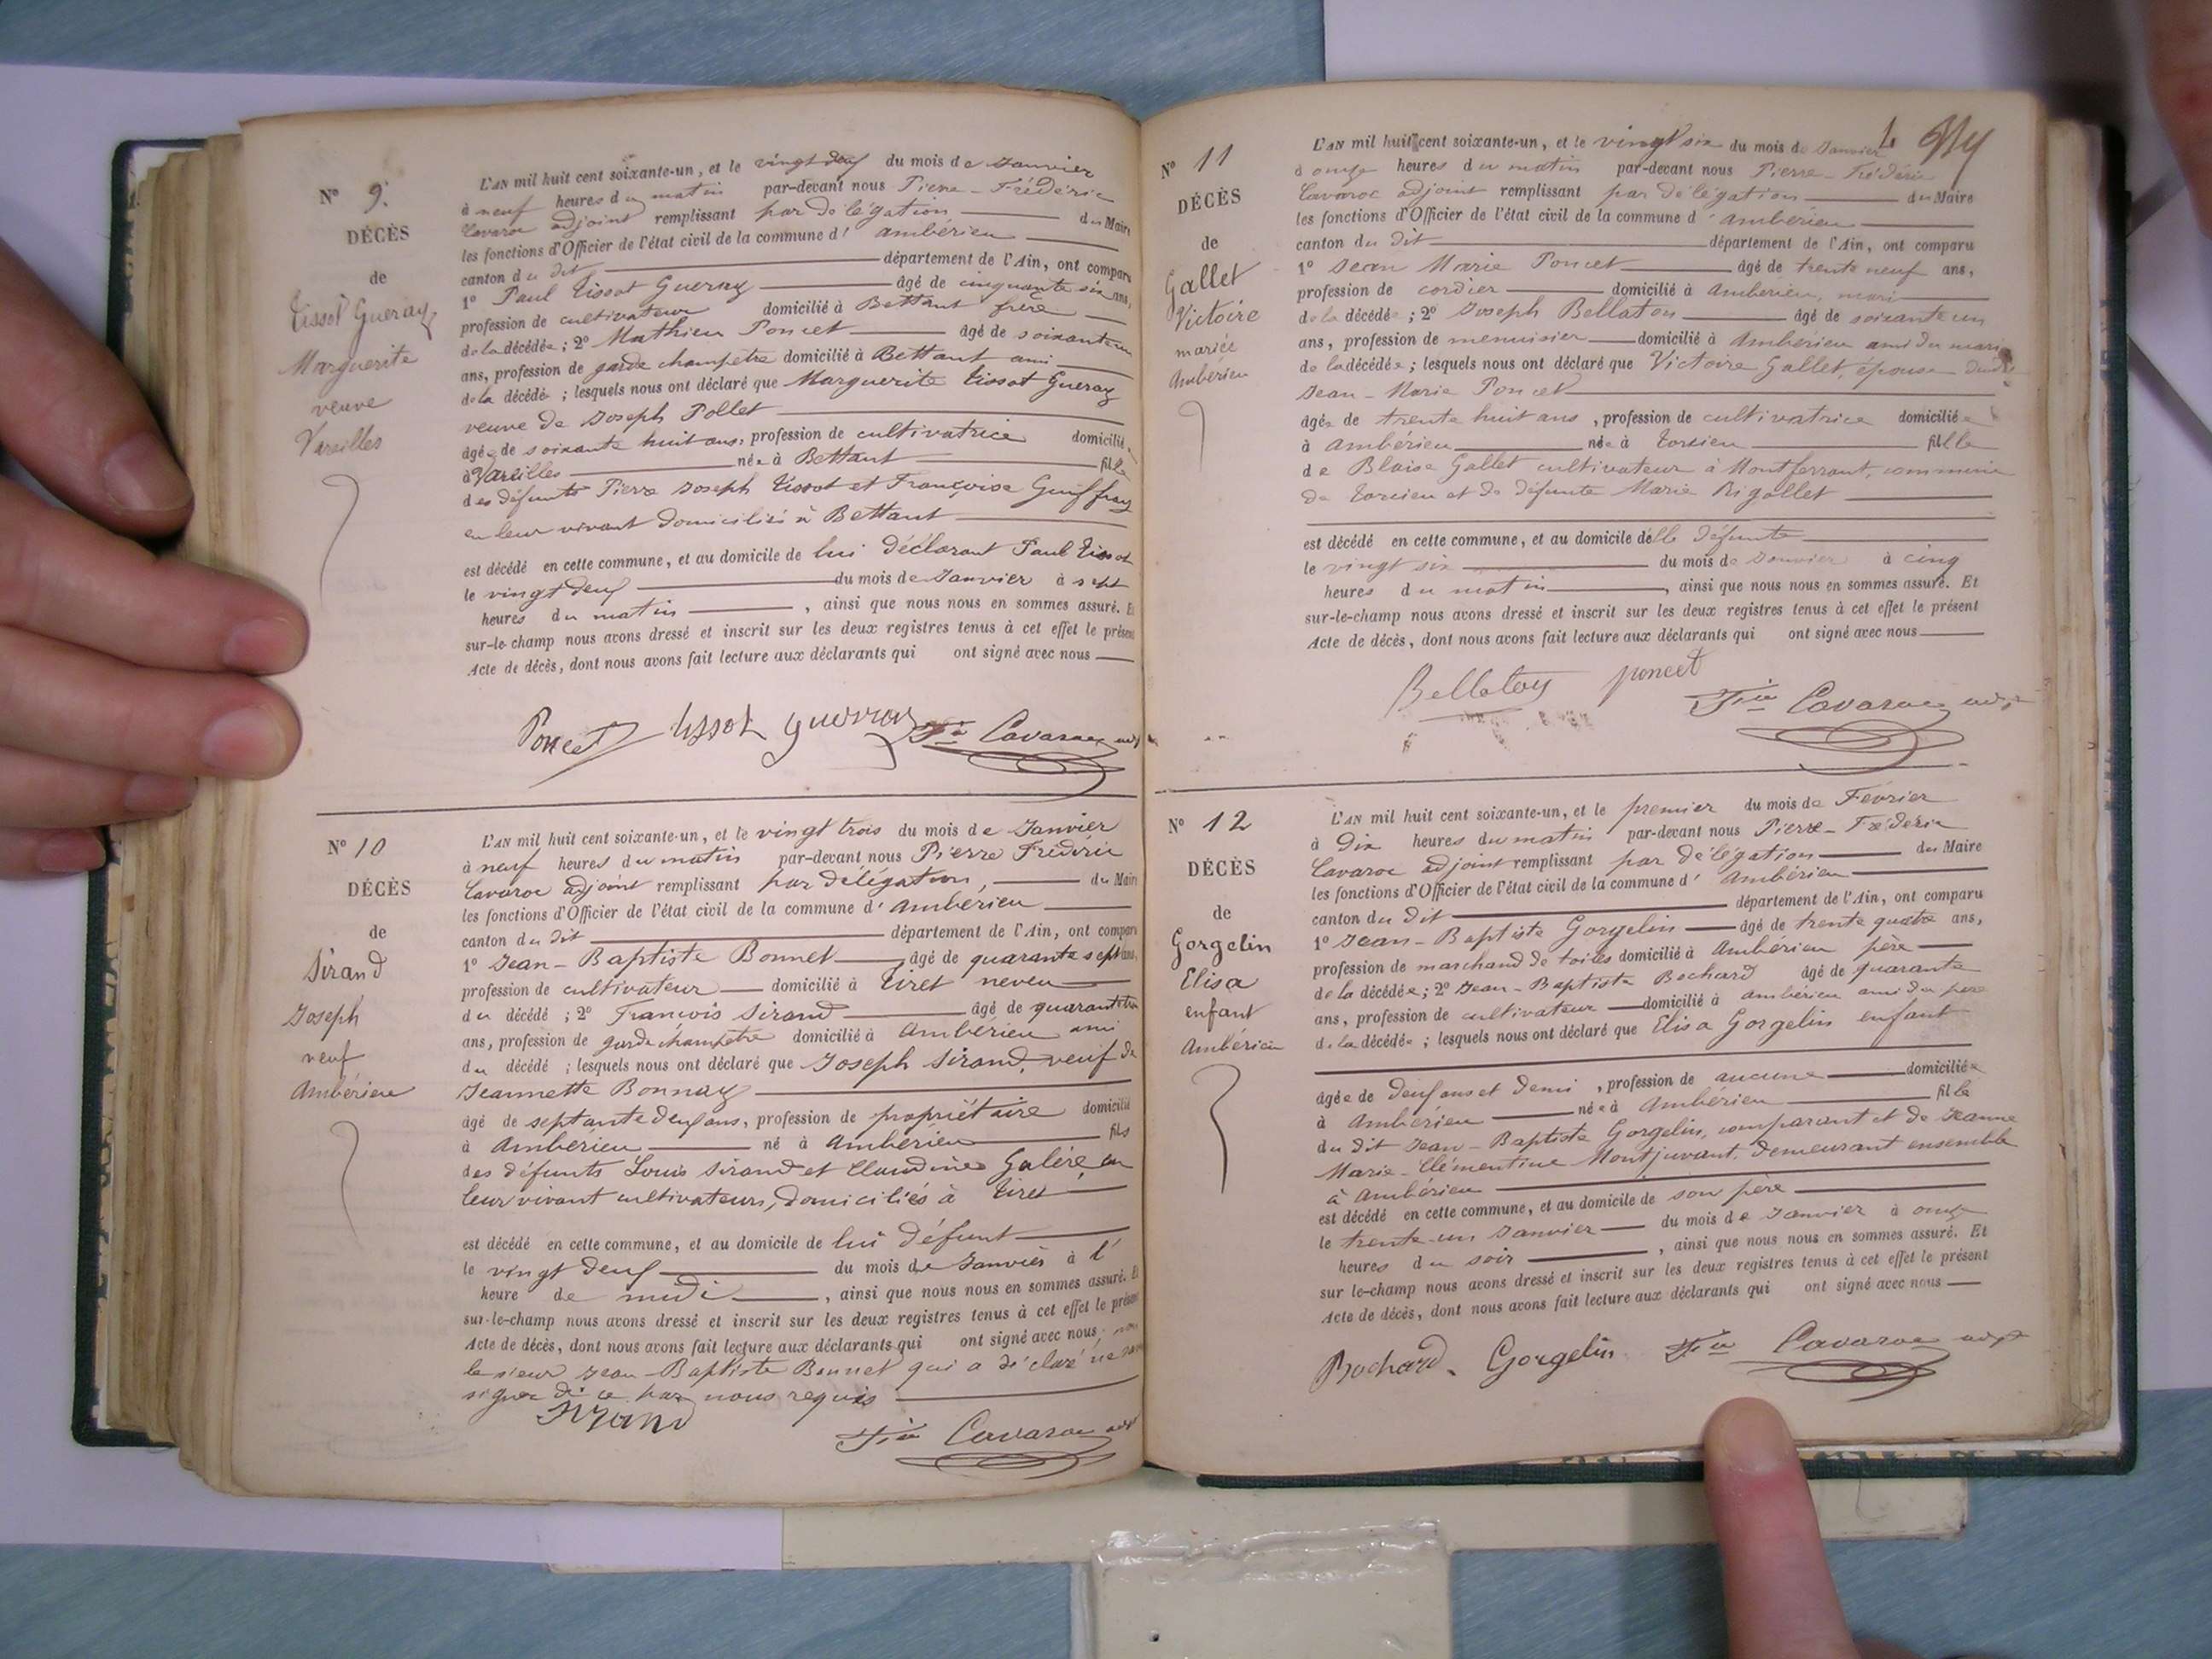 N° 9.
DÉCÈS
de
Tissot Gueraz
Marguerite
veuve
Vareilles
L'AN mil huit cent soixante-un, et le vingt deux du mois de Janvier
à neuf heures du matin par-devant nous Pierre-Frédéric
Cavaroc adjoint remplissant par délégation, du Maire
les fonctions d'Officier de l'état civil de la commune d' Ambérieu
canton du dit département de l'Ain, ont comparu
1° Paul Tissot Gueraz âgé de cinquante six ans,
profession de cultivateur domicilié à Bettant frère
de la décédée ; 2° Mathieu Poncet âgé de soixante un
ans, profession de garde champetre domicilié à Bettant ami
de la décédé ; lesquels nous ont déclaré que Marguerite Tissot Gueraz
veuve de Joseph Pollet
âgée de soixante huit ans, profession de cultivatrice domicilié
à Vareilles née à Bettant fille
des défunts Pierre Joseph Tissot et Françoise
en leur vivant domiciliés à Bettant
est décédé en cette commune, et au domicile de lui déclarant Paul Tissot
le vingt deux du mois de Janvier à sept
heures du matin , ainsi que nous nous en sommes assuré. Et
sur-le-champ nous avons dressé et inscrit sur les deux registres tenus à cet effet le présent
Acte de décès, dont nous avons fait lecture aux déclarants qui ont signé avec nous
Poncet Tissot Guerraz Fic Cavaroc adjt
N° 10
DÉCÈS
de
Sirand
Joseph
veuf
Ambérieu
L'AN mil huit cent soixante-un, et le vingt trois du mois de Janvier
à neuf heures du matin par-devant nous Pierre Frédéric
Cavaroc adjoint remplissant par délégation, du Maire
les fonctions d'Officier de l'état civil de la commune d' Ambérieu
canton du dit département de l'Ain, ont comparu
1° Jean-Baptiste Bonnet âgé de quarante sept ans,
profession de cultivateur domicilié à Tiret neveu
du décédé ; 2° François Sirand âgé de quarante
ans, profession de garde champetre domicilié à Ambérieu ami
du décédé ; lesquels nous ont déclaré que Joseph Sirand, veuf de
Jeannette Bonnaz
âgé de septante deux ans, profession de propriétaire domicilié
à Ambérieu né à Ambérieu fils
des défunts Louis Sirand et Claudine Galère, en
leur vivant cultivateurs, domiciliés à Tiret
est décédé en cette commune, et au domicile de lui défunt
le vingt deux du mois de Janvier à l'
heure de midi , ainsi que nous nous en sommes assuré. Et
sur-le-champ nous avons dressé et inscrit sur les deux registres tenus à cet effet le présent
Acte de décès, dont nous avons fait lecture aux déclarants qui ont signé avec nous, non
le sieur Jean-Baptiste Bonnet qui a déclaré ne
signer de ce par nous requis
Sirand
Fic Cavaroc adjt
4
N° 11
DÉCÈS
de
Gallet
Victoire
mariée
Ambérieu
L'AN mil huit cent soixante-un, et le vingt six du mois de Janvier
à onze heures du matin par-devant nous Pierre-Frédéric
Cavaroc adjoint remplissant par délégation du Maire
les fonctions d'Officier de l'état civil de la commune d' Ambérieu
canton du dit département de l'Ain, ont comparu
1° Jean Marie Poncet âgé de trente neuf ans,
profession de cordier domicilié à Ambérieu, mari
de la décédée ; 2° Joseph Bellaton âgé de soixante un
ans, profession de menuisier domicilié à Ambérieu ami du mari
de la décédée ; lesquels nous ont déclaré que Victoire Gallet, épouse dudit
Jean-Marie Poncet
âgée de trente huit ans , profession de cultivatrice domiciliée
à Ambérieu née à Torcieu fille
de Blaise Gallet cultivateur à Montferrant, commune
de Torcieu et de défunte Marie Rigollet
est décédé en cette commune, et au domicile d'elle défunte
le vingt six du mois de Janvier à cinq
heures du matin , ainsi que nous nous en sommes assuré. Et
sur-le-champ nous avons dressé et inscrit sur les deux registres tenus à cet effet le présent
Acte de décès, dont nous avons fait lecture aux déclarants qui ont signé avec nous
Bellaton poncet
Fic Cavaroc adjt
N° 12
DÉCÈS
de
Gorgelin
Elisa
enfant
Ambérieu
L'AN mil huit cent soixante-un, et le premier du mois de Février
à Dix heures du matin par-devant nous Pierre-Fréderic
Cavaroc adjoint remplissant par délégation du Maire
les fonctions d'Officier de l'état civil de la commune d' Ambérieu
canton du dit département de l'Ain, ont comparu
1° Jean-Baptiste Gorgelin âgé de trente quatre ans,
profession de marchand de toiles domicilié à Ambérieu père
de la décédée ; 2° Jean-Baptiste Bochard âgé de quarante
ans, profession de cultivateur domicilié à Ambérieu ami du père
de la décédée ; lesquels nous ont déclaré que Elisa Gorgelin enfant
âgée de deux ans et demi , profession de aucune domiciliée
à Ambérieu née à Ambérieu fille
du dit Jean-Baptiste Gorgelin, comparant et de Jeanne
Marie-Clémentine Montjuvant, demeurant ensemble
à Ambérieu
est décédé en cette commune, et au domicile de son père
le trente-un Janvier du mois de Janvier à onze
heures du soir , ainsi que nous nous en sommes assuré. Et
sur le-champ nous avons dressé et inscrit sur les deux registres tenus à cet effet le présent
Acte de décès, dont nous avons fait lecture aux déclarants qui ont signé avec nous
Bochard. Gorgelin Fic Cavaroc adjt